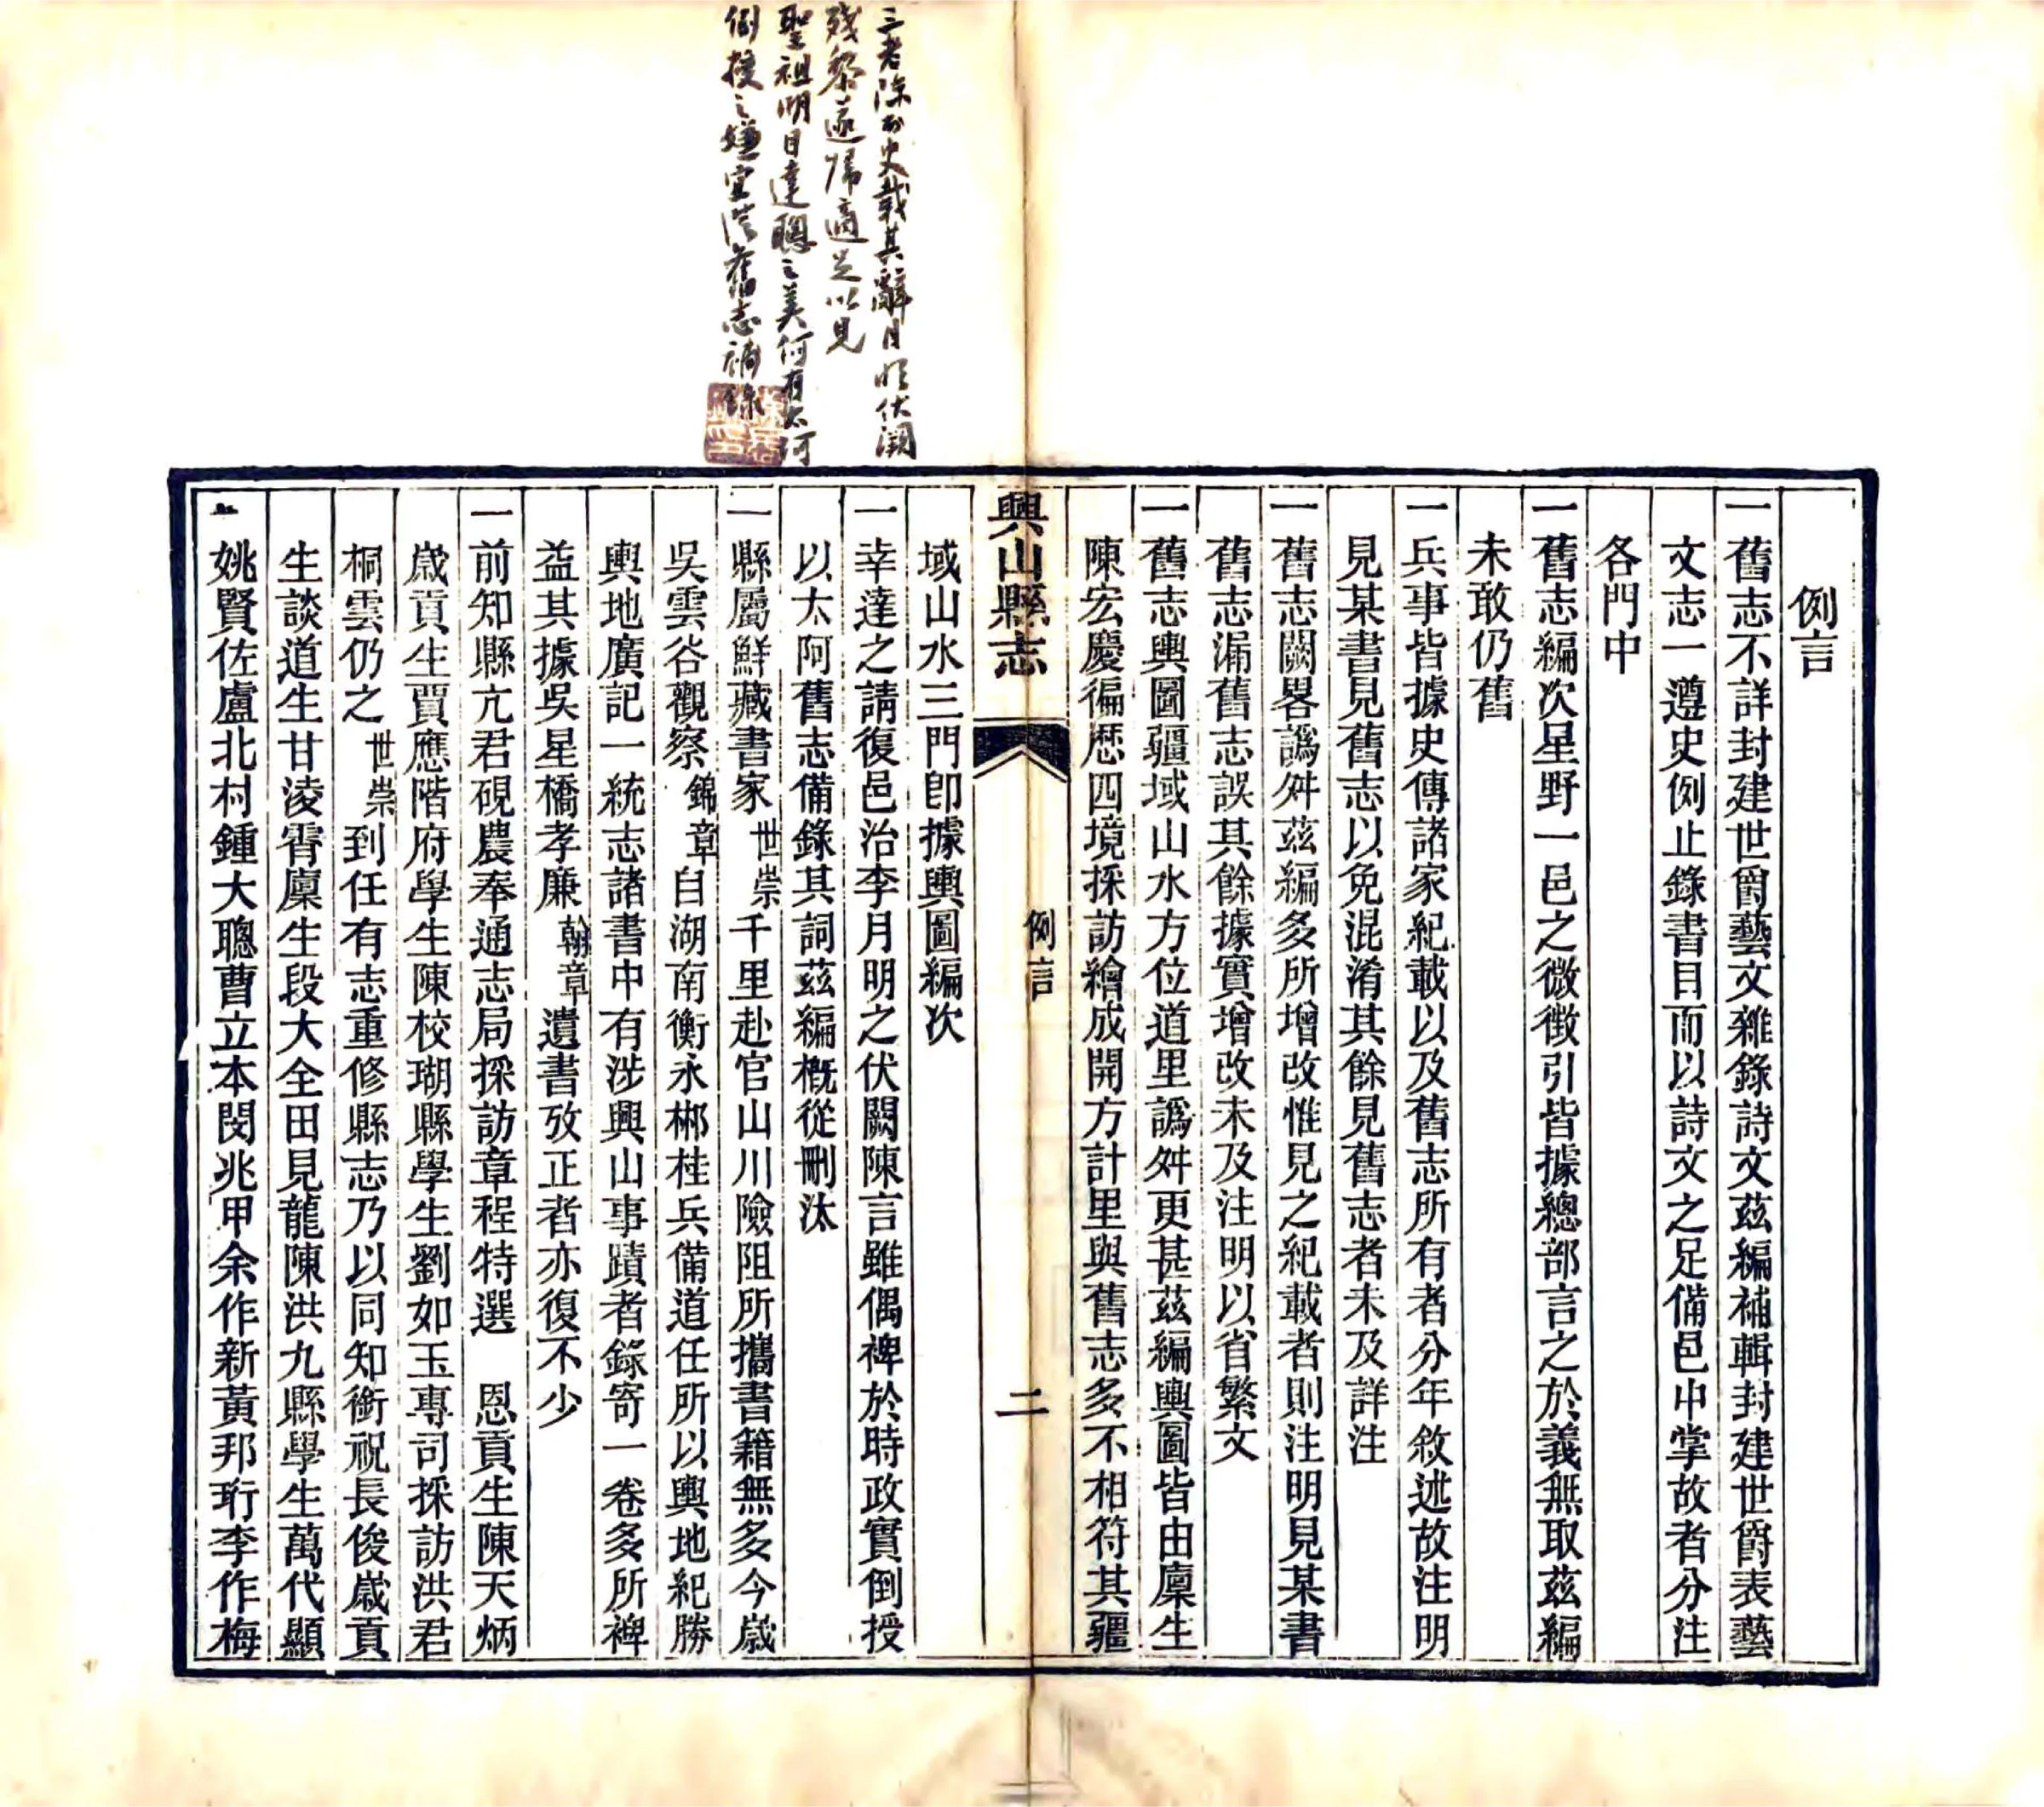 三老陳於史載其辭月明伏闕
殘黎遂歸適足以見
聖祖明目達聰之美何有太阿
倒授之嫌宜從舊志補錄
例言
一舊志不詳封建世爵藝文雜錄詩文茲編補輯封建世爵表藝
文志一遵史例止錄書目而以詩文之足備邑中掌故者分注
各門中
一舊志編次星野一邑之微徵引皆據總部言之於義無取茲編
未敢仍舊
一兵事皆據史傳諸家紀載以及舊志所有者分年敘述故注明
見某書見舊志以免混淆其餘見舊志者未及詳注
一舊志闕畧譌舛茲編多所增改惟見之紀載者則注明見某書
舊志漏舊志誤其餘據實增改未及注明以省繁文
一舊志輿圖疆域山水方位道里譌舛更甚茲編輿圖皆由廩生
陳宏慶徧歷四境採訪繪成開方計里與舊志多不相符其疆
興山縣志
例言
二
域山水三門卽據輿圖編次
一幸達之請復邑治李月明之伏闕陳言雖偶裨於時政實倒授
以太阿舊志備錄其詞茲編概從刪汰
一縣屬鮮藏書家世崇千里赴官山川險阻所攜書籍無多今歲
吳雲谷觀察錦章自湖南衡永郴桂兵備道任所以輿地紀勝
輿地廣記一統志諸書中有涉興山事蹟者錄寄一卷多所裨
益其據吳星橋孝廉翰章遺書攷正者亦復不少
一前知縣亢君硯農奉通志局採訪章程特選 恩貢生陳天炳
歲貢生賈應階府學生陳校瑚縣學生劉如玉專司採訪洪君
桐雲仍之世崇到任有志重修縣志乃以同知銜祝長俊歲貢
生談道生甘淩霄廩生段大全田見龍陳洪九縣學生萬代顯
姚賢佐盧北村鍾大聰曹立本閔兆甲余作新黃邦珩李作梅